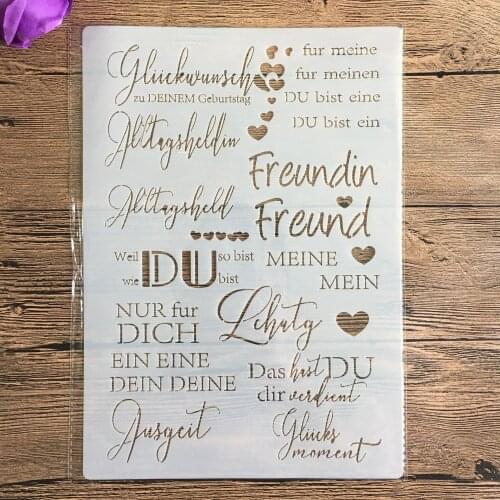 Glückwunsch
zu DEINEM Geburtstag
fur meine
fur meinen
DU bist eine
DU bist ein
Alltagsheldin
Freundin
Alltagsheld
Freund
Weil DU so bist
wie bist
MEINE
MEIN
NUR fur
DICH
Lchutg
EIN EINE
DEIN DEINE
Das hast DU
dir verdient
Ausgeit
Glücks
moment